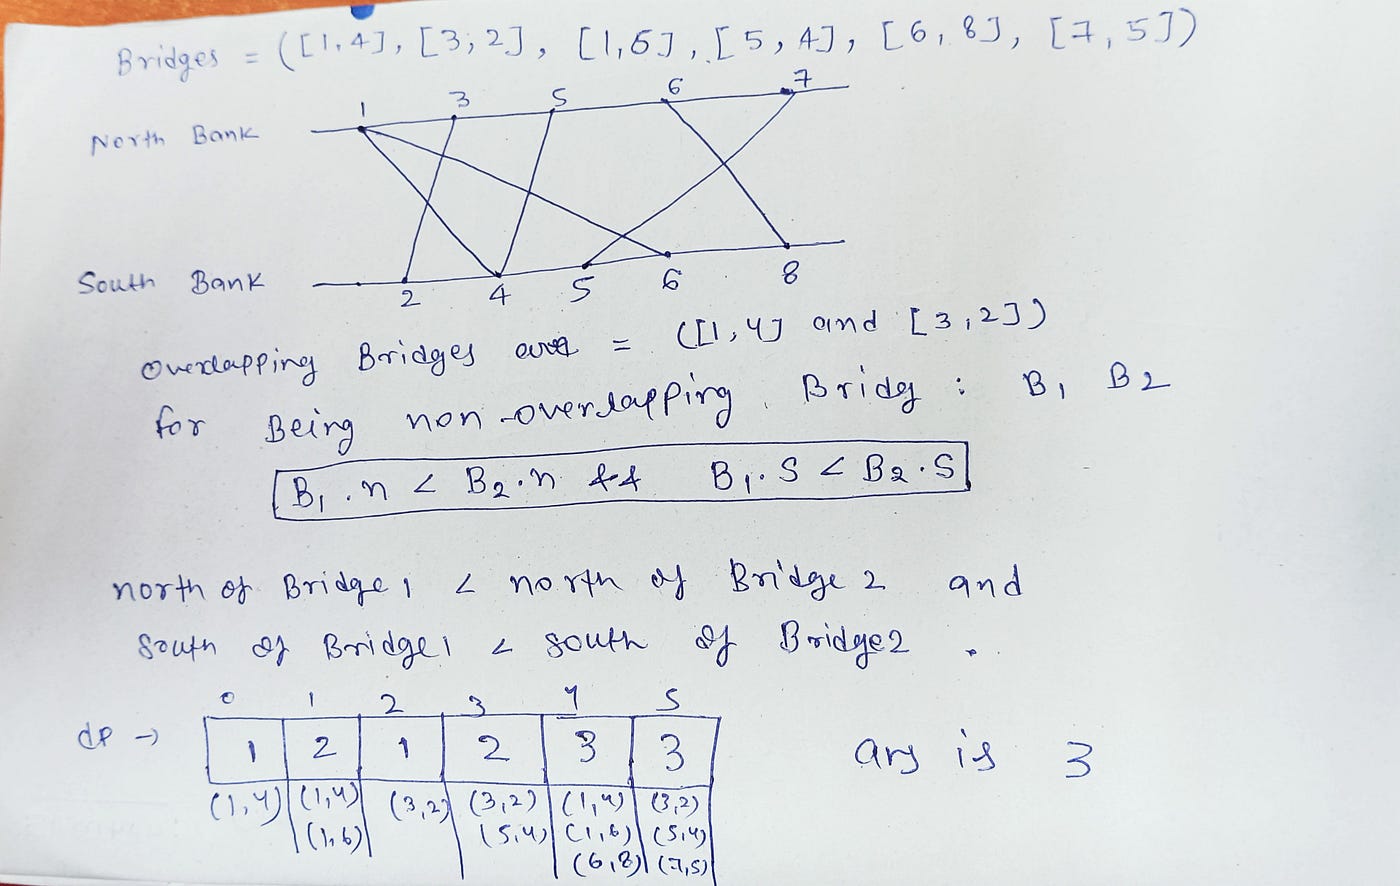 Bridges = ([1,4], [3,2], [1,6], [5,4], [6,8], [7,5])
1 3 5 6 7
North Bank
South Bank
2 4 5 6 8
overlapping Bridges are = ([1,4] and [3,2])
for Being non-overlapping. Bridg : B1 B2
B1.n < B2.n && B1.S < B2.S
north of Bridge 1 < north of Bridge 2 and
south of Bridge1 < south of Bridge2 .
0 1 2 3 4 5
dp → 1 2 1 2 3 3
ans is 3
(1,4) (1,4) (3,2) (3,2) (1,4) (3,2)
(1,6) (5,4) (1,6) (5,4)
(6,8) (7,5)